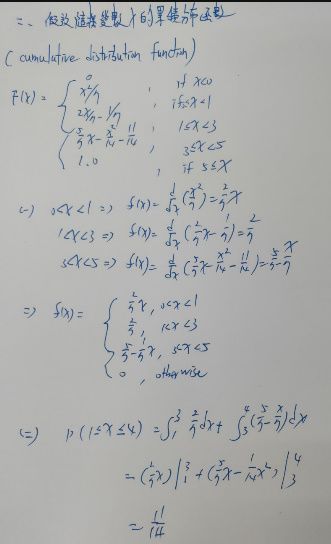 二、假設隨機變數X的累積分布函數
(cumulative distribution function)
F(x) = { 0 , if x<0
x²/7 , if 0≤x<1
2x/7 - 1/7 , 1≤x<3
5/7 x - x²/14 - 11/14 , 3≤x<5
1.0 , if 5≤x
(一) 0<x<1 => f(x) = d/dx (x²/7) = 2/7 x
1<x<3 => f(x) = d/dx (2/7 x - 1/7) = 2/7
3<x<5 => f(x) = d/dx (5/7 x - x²/14 - 11/14) = 5/7 - x/7
=> f(x) = { 2/7 x , 0<x<1
2/7 , 1<x<3
5/7 - 1/7 x , 3<x<5
0 , otherwise
(二) P(1≤x≤4) = ∫₁³ 2/7 dx + ∫₃⁴ (5/7 - x/7) dx
= (2/7 x)|₁³ + (5/7 x - 1/14 x²)|₃⁴
= 11/14